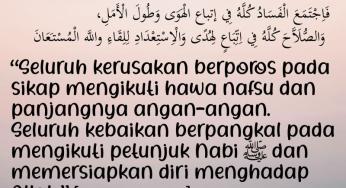 فَاجْتَمَعَ الْفَسَادُ كُلُّهُ فِي إتباع الْهَوَى وَطُولَ الْأَمَلِ،
وَالصَّلَاحُ كُلُّهُ فِي اِتِّبَاعِ لِهُدًى وَالْاِسْتِعْدَادِ لِلِقَاءِ واللّٰه الْمُسْتَعَانَ
“Seluruh kerusakan berporos pada
sikap mengikuti hawa nafsu dan
panjangnya angan-angan.
Seluruh kebaikan berpangkal pada
mengikuti petunjuk Nabi ﷺ dan
memersiapkan diri menghadap